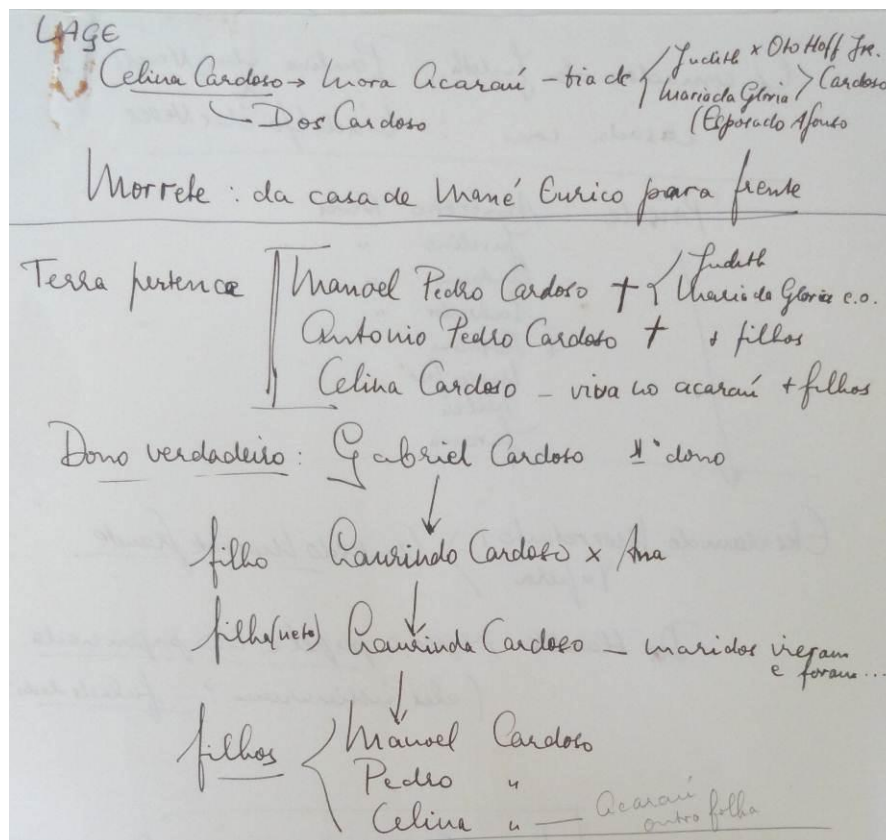 LAGE
Celina Cardoso → mora Acaraú - tia de { Judith x Oto Hoff Jre.
Maria da Gloria > Cardoso
Dos Cardoso
(Esposa do Afonso
Morrete : da casa de Mané Eurico para frente
Terra pertence Manoel Pedro Cardoso † { Judith
Maria da Gloria e.o.
Antonio Pedro Cardoso † + filhos
Celina Cardoso - viva no acaraú + filhos
Dono verdadeiro : Gabriel Cardoso 1º dono
filho Laurindo Cardoso x Ana
filha (neto) Laurinda Cardoso - maridos vieram
e foram ...
filhos { Manoel Cardoso
Pedro "
Celina " - Acaraú
outro folha